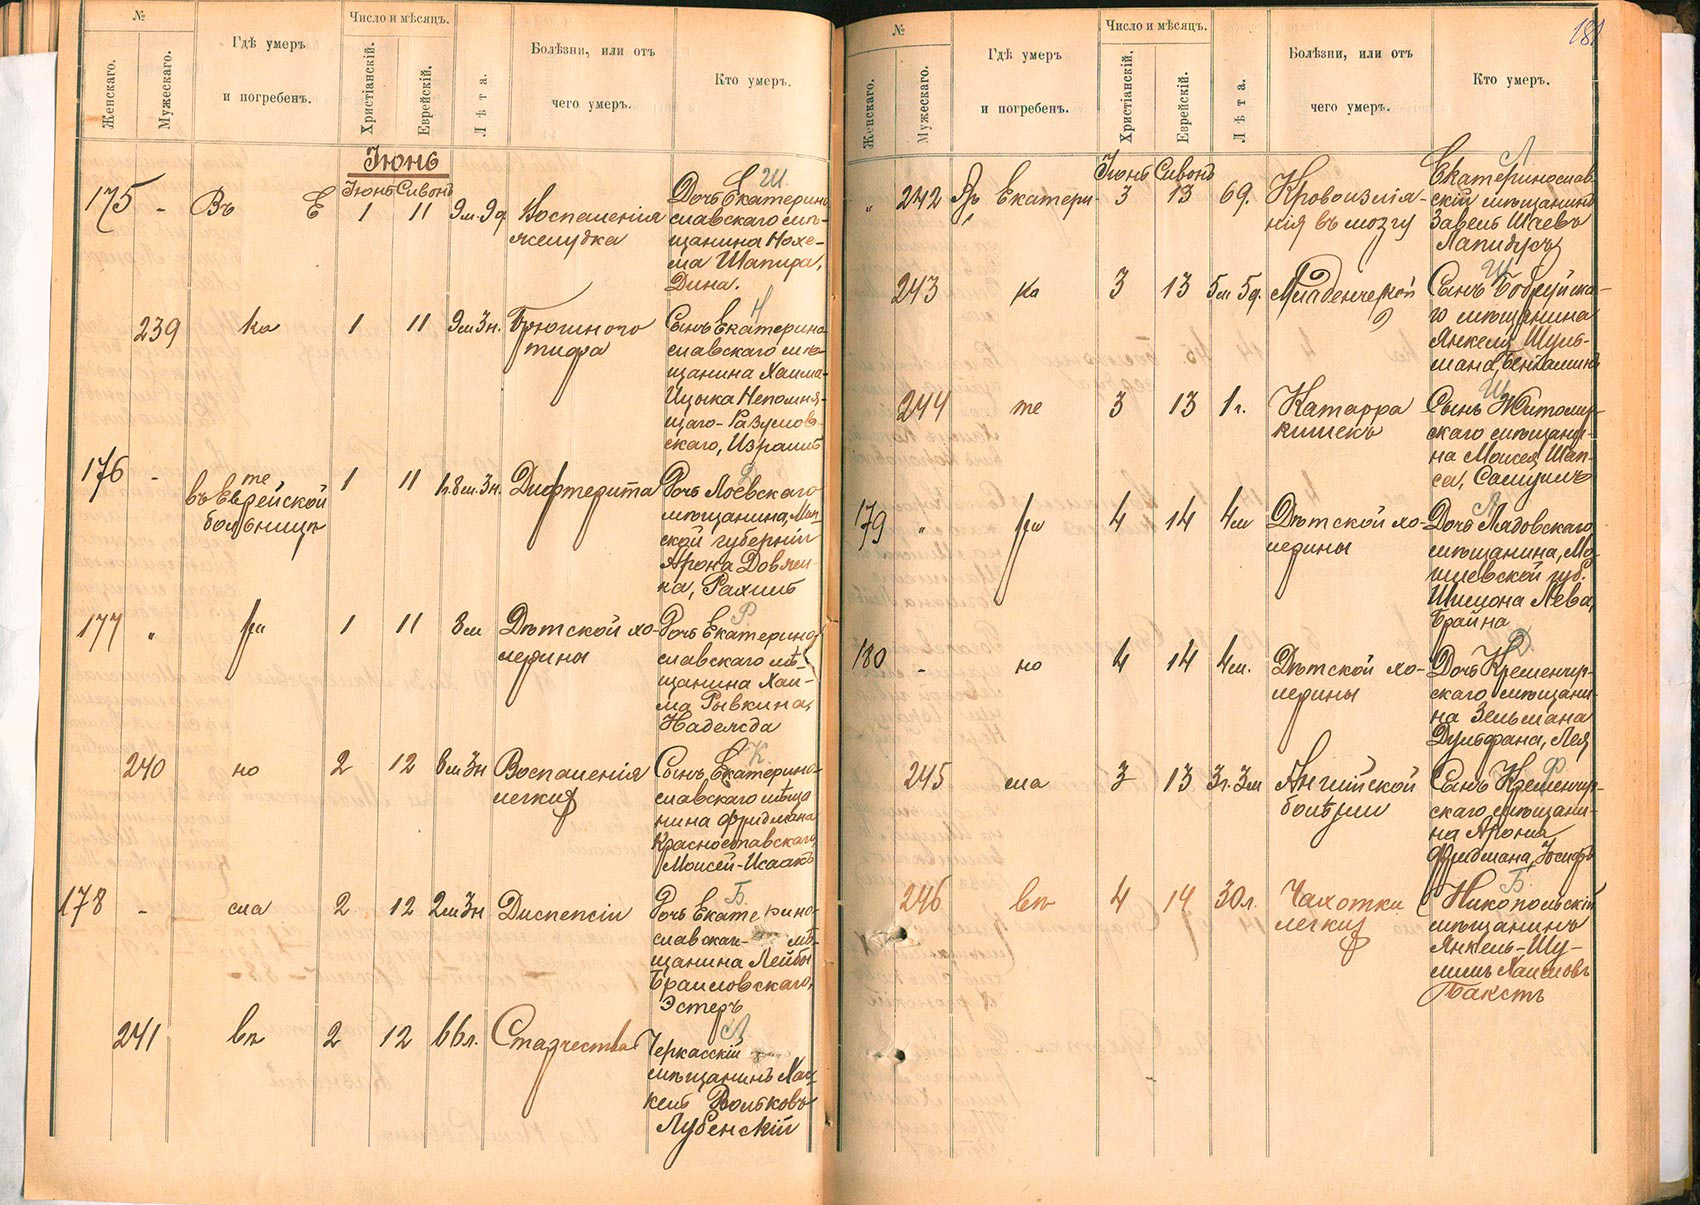 №
Женскаго.
Мужескаго.
Гдѣ умеръ
и погребенъ.
Число и мѣсяцъ.
Христіанскій.
Еврейскій.
Лѣта.
Болѣзни, или отъ
чего умеръ.
Кто умеръ.
Іюнь
Іюнь Сивонъ
175 - Въ Е 1 11 9м. 9д. Воспаленія
желудка
Ш.
Дочь Екатерино
славскаго мѣ-
щанина Нохе-
ма Шапиро,
Дина.
239 ка 1 11 9м 3н. Брюшного
тифа
Н
Сынъ Екатерино
славскаго мѣ-
щанина Хаима-
Ицыка Непомня-
щаго-Разумов-
скаго, Израиль
176 - те
въ Еврейской
больницѣ
1 11 1г.8м.3н. Дифтерита
Дочь Лоевскаго
мѣщанина, Мин-
ской губерніи
Арона Довжи-
ка, Рахиль
177 " ри 1 11 8м Дѣтской хо-
лерины
Р.
Дочь Екатерино
славскаго мѣ-
щанина Хаи-
ма Рывкина,
Надежда
240 но 2 12 8м 3н Воспаленія
легкихъ
К.
Сынъ Екатерино-
славскаго мѣща
нина Фридмана
Красноставскаго,
Моисей-Исаакъ
178 - сла 2 12 2м 3н Диспепсіи
Б.
Дочь Екатерино-
славскаго мѣ-
щанина Лейбы
Браиловскаго,
Эстеръ
241 вѣ 2 12 66л. Старчества
Л.
Черкасскій
мѣщанинъ Хац-
кель Вольковъ
Лубенскій
181
№
Женскаго.
Мужескаго.
Гдѣ умеръ
и погребенъ.
Число и мѣсяцъ.
Христіанскій.
Еврейскій.
Лѣта.
Болѣзни, или отъ
чего умеръ.
Кто умеръ.
Іюнь Сивонъ
" 242 Въ Екатери- 3 13 69. Кровоизлія-
нія въ мозгу
Л
Екатеринослав-
скій мѣщанинъ
Завель Шаевъ
Лапидусъ
243 ка 3 13 5м 5д. Младенческой
Ш
Сынъ Бобруйска-
го мѣщанина
Янкеля Шуль-
мана, Беніаминъ
244 те 3 13 1г. Катарра
кишекъ
Ш
Сынъ Житомір-
скаго мѣщани-
на Моисея Шап-
са, Самуилъ
179 " ри 4 14 4м Дѣтской хо-
лерины
Л
Дочь Лядовскаго
мѣщанина, Мо-
гилевской губ.
Шимона Лева,
Брайна
180 - но 4 14 4м. Дѣтской хо-
лерины
Д
Дочь Кременчуг-
скаго мѣщани-
на Зельмана
Дульфана, Лея
245 сла 3 13 3г. 3м Англійской
болѣзни
Ф
Сынъ Кременчуг-
скаго мѣщани-
на Арона
Фридмана, Іосифъ
246 вѣ 4 14 30л. Чахотки
легкихъ
Б.
Никопольскій
мѣщанинъ
Янкель-Шу-
лимъ Хаимовъ
Бакстъ